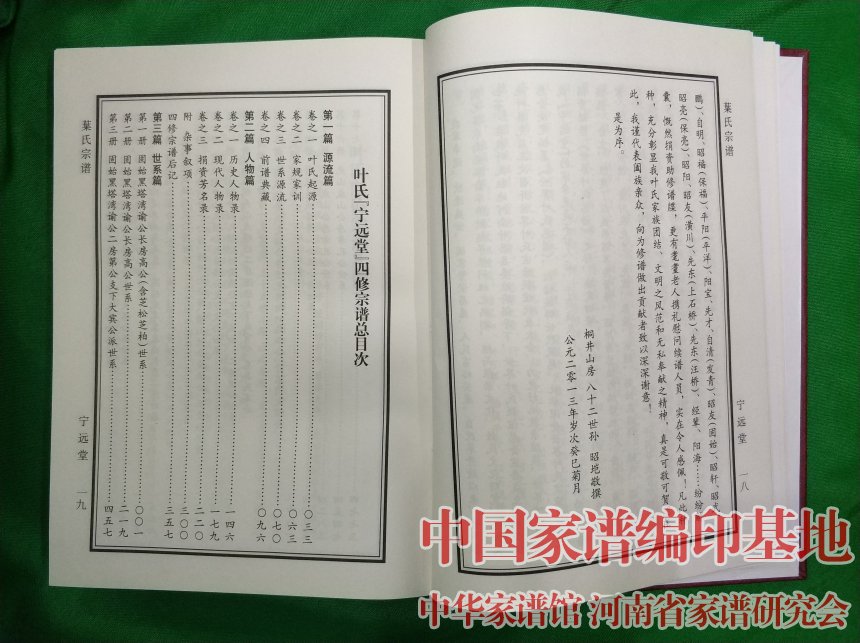 葉氏宗谱
鹏)、自明、昭福(保福)、平阳(平洋)、阳宝、先才、自清(发青)、昭友(固始)、昭轩、昭
昭亮(保亮)、昭阳、昭友(潢川)、先东(上石桥)、先东(汪桥)、经辈、阳海……纷纷
囊,慨然捐资助修谱牒,更有耄耋老人携礼慰问续谱人员,实在令人感佩!凡此
种,充分彰显我叶氏家族团结、文明之风范和无私奉献之精神,真是可敬可贺
此,我谨代表阖族亲众,向为修谱做出贡献者致以深深谢意!
是为序。
桐井山房 八十二世孙 昭垲敬撰
公元二零一三年岁次癸巳菊月
宁远堂 一八
叶氏『宁远堂』四修宗谱总目次
第一篇 源流篇
卷之一 叶氏起源……〇三三
卷之二 家规家训……〇六三
卷之三 世系源流……〇七〇
卷之四 前谱典藏……〇九六
第二篇 人物篇
卷之一 历史人物录……一四六
卷之二 现代人物录……一七九
卷之三 捐资芳名录……二二〇
附 杂事叙项……三〇〇
四修宗谱后记……三五七
第三篇 世系篇
第一册 固始黑塔湾谕公长房高公(含芝松芝柏)世系……〇〇一
第二册 固始黑塔湾谕公长房高公世系……二一九
第三册 固始黑塔湾谕公二房第公支下大宾公派世系……四五七
葉氏宗谱
宁远堂 一九
中国家谱编印基地
中华家谱馆 河南省家谱研究会